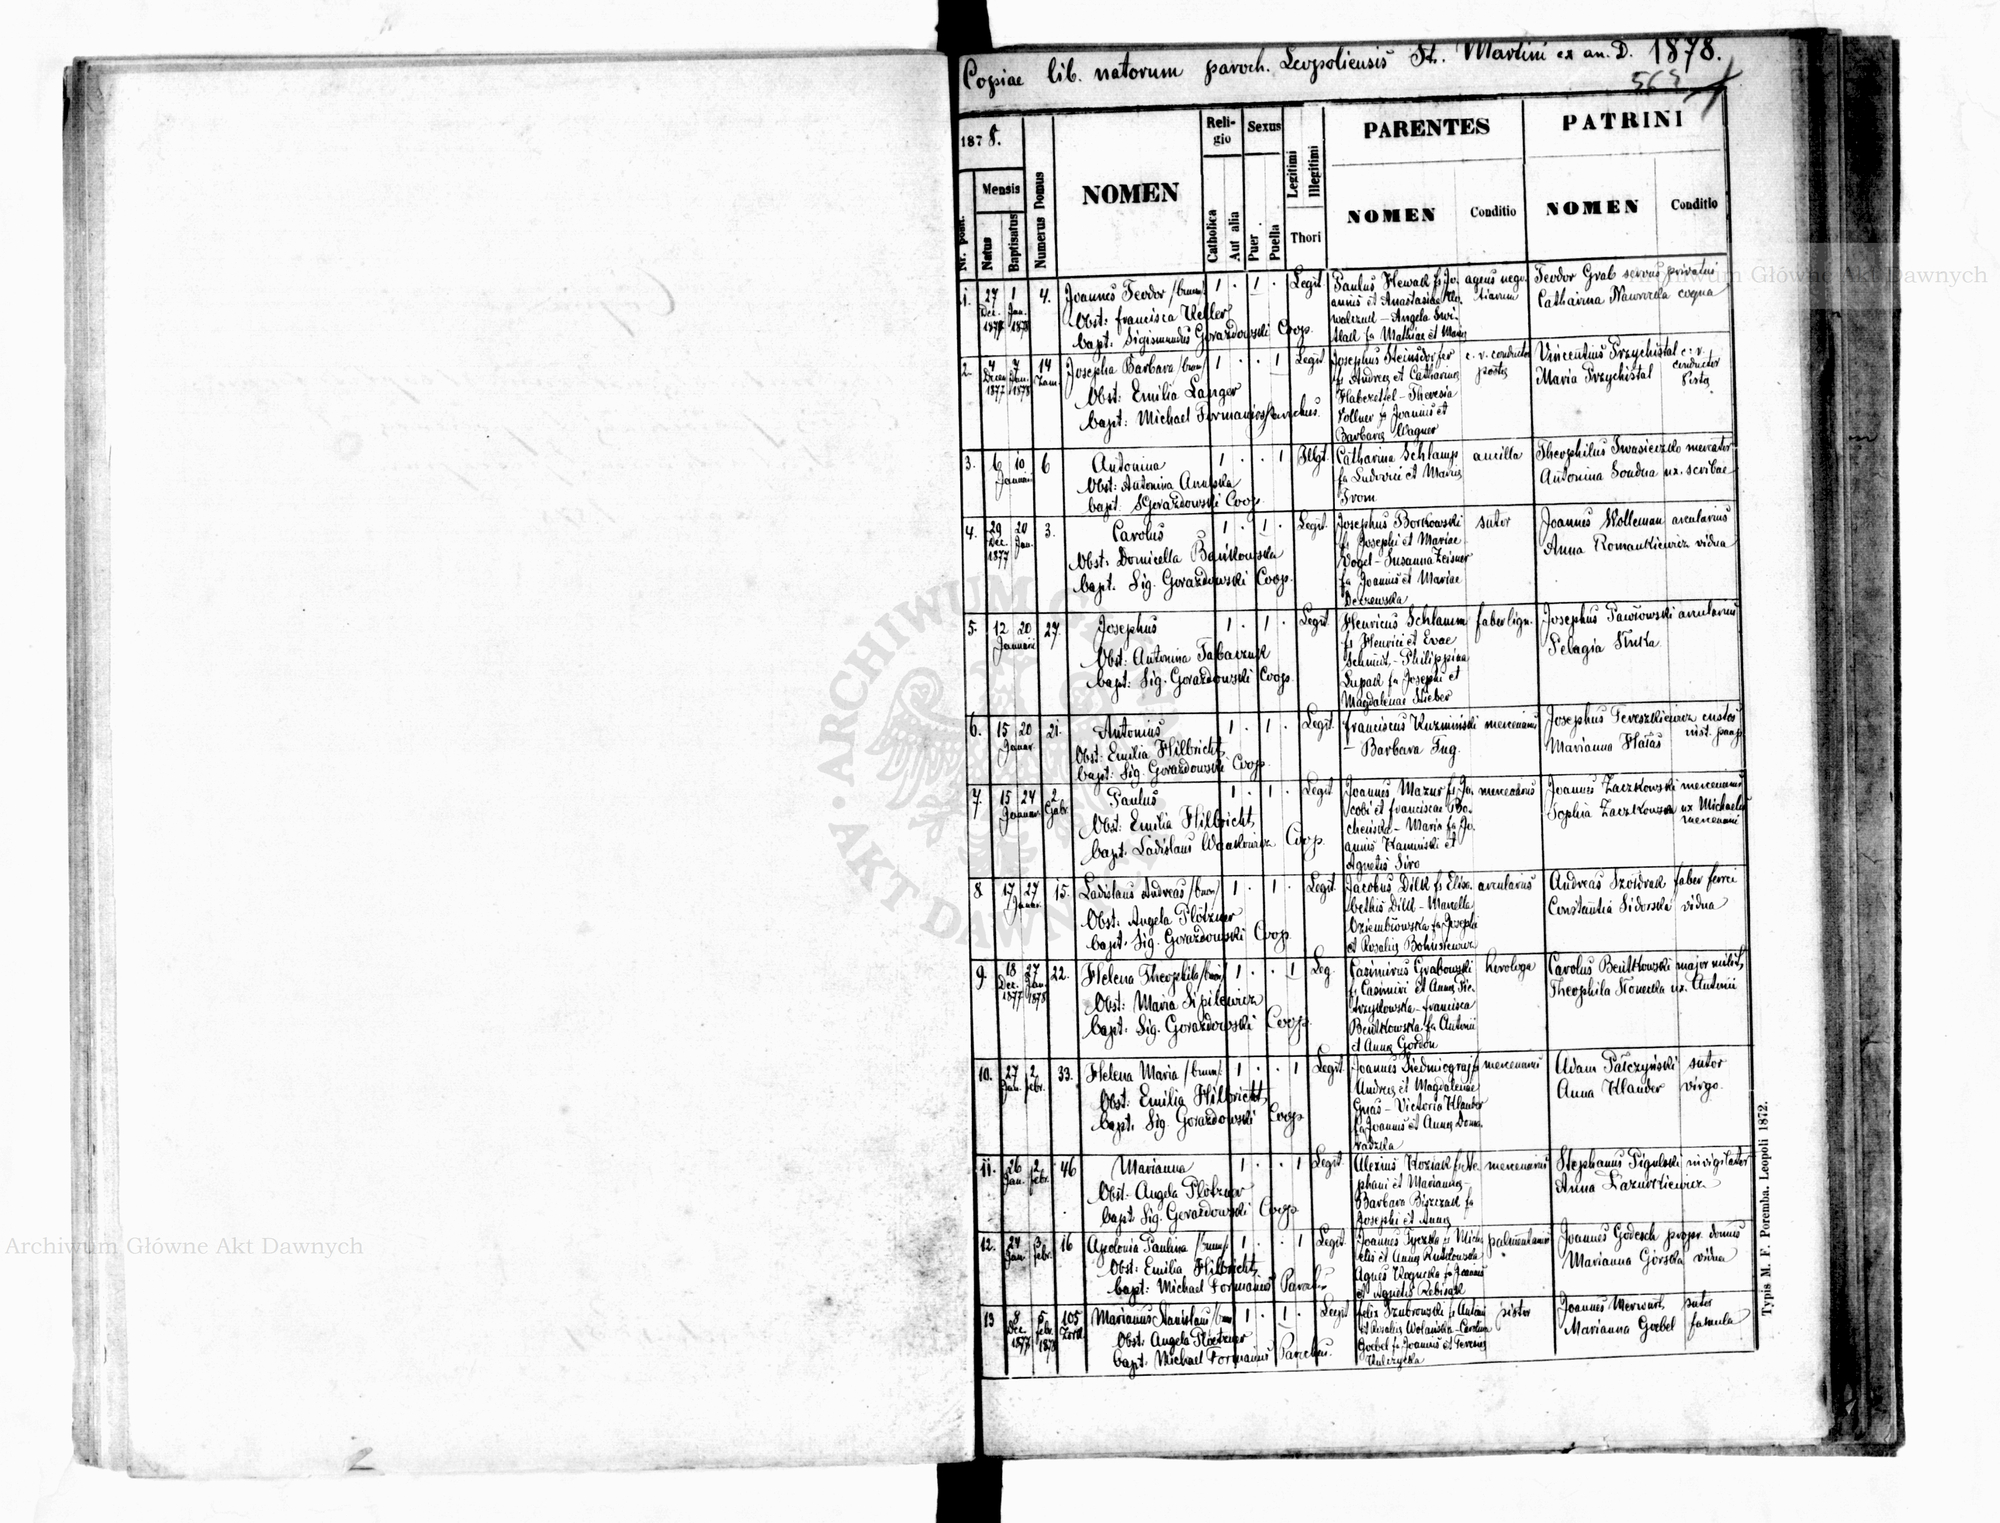 Copiae lib. natorum paroch. Leopoliensis St. Martini ex an. D. 1878.
563
1878.
Nr. posit.
Mensis
Natus
Baptisatus
Numerus Domus
NOMEN
Religio
Catholica
Aut alia
Sexus
Puer
Puella
Legitimi
Illegitimi
Thori
PARENTES
NOMEN
Conditio
PATRINI
NOMEN
Conditio
1. 27 Dec. 1877 1 Jan. 1878 4. Joannes Teodor /bnom/ 1 · 1 · Legit.
Obst: Francisca Keller
bapt: Sigismundus Gorazdowski Coop.
Paulus Hewak fs Jo-
annis et Anastasiae
Angela
fa Mathiae et Mariae
agens nego-
tiarum
Teodor Grab servus privatus
Catharina Nawrocka coqua
2. 4 Decem 1877 7 Jan. 1878 14 Zam. Josepha Barbara /bnom/ 1 · · 1 Legit
Obst: Emilia Langer
bapt: Michael Formanios Parochus.
Josephus Steinsdorfer
fs Andreae et Catharinae
Haberettel - Theresia
Zollner fa Joannis et
Barbarae Wagner
c. r. conductor
postae
Vincentius Przychistal c. r.
conductor
Maria Przychistal
postae
3. 6 10 Januarii 6 Antonina 1 · · 1 Illgt.
Obst: Antonina
bapt: SGorazdowski Coop.
Catharina Schlamp
fa Ludovici et Mariae
From
ancilla
Theophilus Iwasieczko mercator
Antonina Soudna ux. scribae
4. 29 Dec. 1877 20 Jan. 3. Carolus 1 · 1 · Legit.
Obst: Domicella Bańkowska
bapt: Sig. Gorazdowski Coop.
Josephus Borkowski
fs Josephi et Mariae
Vogel - Susanna Zeisner
fa Joannis et Mariae
Detzewska
sutor
Joannes Wolleman arcularius
Anna Romankiewicz vidua
5. 12 20 Januarii 27. Josephus 1 · 1 · Legit.
Obst: Antonina Tabaczuk
bapt: Sig. Gorazdowski Coop.
Henricus Schlamm
fs Henrici et Evae
Schmitt - Philippina
Lupack fa Josephi et
Magdalenae Stieber
faber lign.
Josephus Pawłowski arcularius
Pelagia
6. 15 20 Januar. 21. Antonius 1 · 1 · Legit.
Obst: Emilia Hilbricht
bapt: Sig. Gorazdowski Coop.
Franciscus Kuzminski
- Barbara Fug.
mercenarius
Josephus Tereszkiewicz custos
Marianna
7. 15 24 Januar. 2 Gabr. Paulus 1 · 1 · Legit
Obst: Emilia Hilbricht
bapt: Ladislaus Coop.
Joannes Mazur fs Ja-
cobi et Franciscae Bo-
cheńska - Maria fa Jo-
annis Kaminski et
Agnetis Siro
mercenarius
Joannes Zaczkowski mercenarius
Sophia Zaczkowska ux Michaelis
mercenarii
8 17 27 Januar. 15. Ladislaus Andreas /bnom/ 1 · 1 · Legit.
Obst: Angela Plötzner
bapt: Sig. Gorazdowski Coop.
Jacobus Dikk fs Elisa-
bethis Dikk - Marcella
Oziembłowska fa Josephi
et Rosaliae Bohusiewicz
arcularius
Andreas Szozdrak faber ferrei
Constantia Sidorska vidua
9. 18 Dec. 1877 27 Jan. 1878 22. Helena Theophila /bnom/ 1 · · 1 Leg.
Obst: Maria Sipilewicz
bapt: Sig. Gorazdowski Coop.
Casimirus Grabowski
fs Casimiri et Annae Pie-
trzykowska - Francisca
Beńtkowska fa Antonii
et Annae Gordon
horologa
Carolus Beńtkowski major milit.
Theophila Konecka ux. Antonii
10. 27 Jan. 2 febr. 33. Helena Maria /bnom/ 1 · · 1 Legit.
Obst: Emilia Hilbricht
bapt: Sig. Gorazdowski Coop.
Joannes Siedmiograj fs
Andreae et Magdalenae
Gnas - Victoria Klauder
fa Joannis et Annae Doma-
radzka
mercenarius
Adam Pałczyński sutor
Anna Klauder virgo.
11. 26 Jan. 2 febr. 46 Marianna 1 · · 1 Legit.
Obst: Angela Plötzner
bapt: Sig. Gorazdowski Coop.
Alexius Koziak fs Ste-
phani et Mariannae -
Barbara Biszczak fa
Josephi et Annae
mercenarius
Stephanus Pigulski invigilator
Anna Łazurkiewicz
12. 24 Jan. 3 febr. 16 Apolonia Paulina /bnom/ 1 · · 1 Legit.
Obst: Emilia Hilbricht
bapt: Michael Formanios Paroch.
Joannes fs Micha-
elis et Annae Rutkowska
Agnes fa Joannis
et Agnetis
palmentarius
Joannes Godesch propr. domus
Marianna Górska vidua
13 8 Dec. 1877 5 febr. 1878 105 Marianus Stanislaus /bnom/ 1 · 1 · Legit
Obst: Angela Ploetzner
bapt: Michael Formanios Parochus.
Felix Szubrowski fs Antoni
et Rosaliae Wolańska - Carolina
Goebel fa Joannis et Teresiae
Kulczycka
pistor
Joannes Merwart sutor
Marianna Goebel famula
Typis M. F. Poremba. Leopoli 1872.
2
Archiwum Główne Akt Dawnych
Archiwum Główne Akt Dawnych
ARCHIWUM GŁÓWNE · AKT DAWNYCH ·